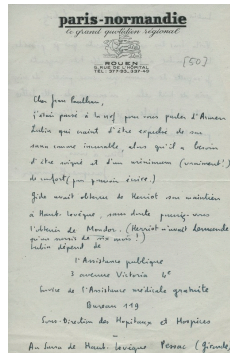 paris-normandie
le grand quotidien régional
ROUEN
9, RUE DE L'HOPITAL
TEL : 377-93, 337-49
[50]
Cher Jean Paulhan,
j'étais passé à la nrf pour vous parler d'Armen
Lubin qui craint d'être expulsé de son
sana comme incurable, alors qu'il a besoin
d'être soigné et d'un minimum (vraiment !)
de confort (pour pouvoir écrire.)
Gide avait obtenu de Herriot son maintien
à Haut-Levêque, sans doute pourriez-vous
l'obtenir de Mondor. (Herriot n'avait demandé
qu'un sursis de six mois !)
Lubin dépend de
l'Assistance publique
3 avenue Victoria 4e
Service de l'Assistance médicale gratuite
Bureau 119
Sous-Direction des Hopitaux et Hospices
Au Sana de Haut-Levêque Pessac (Gironde)